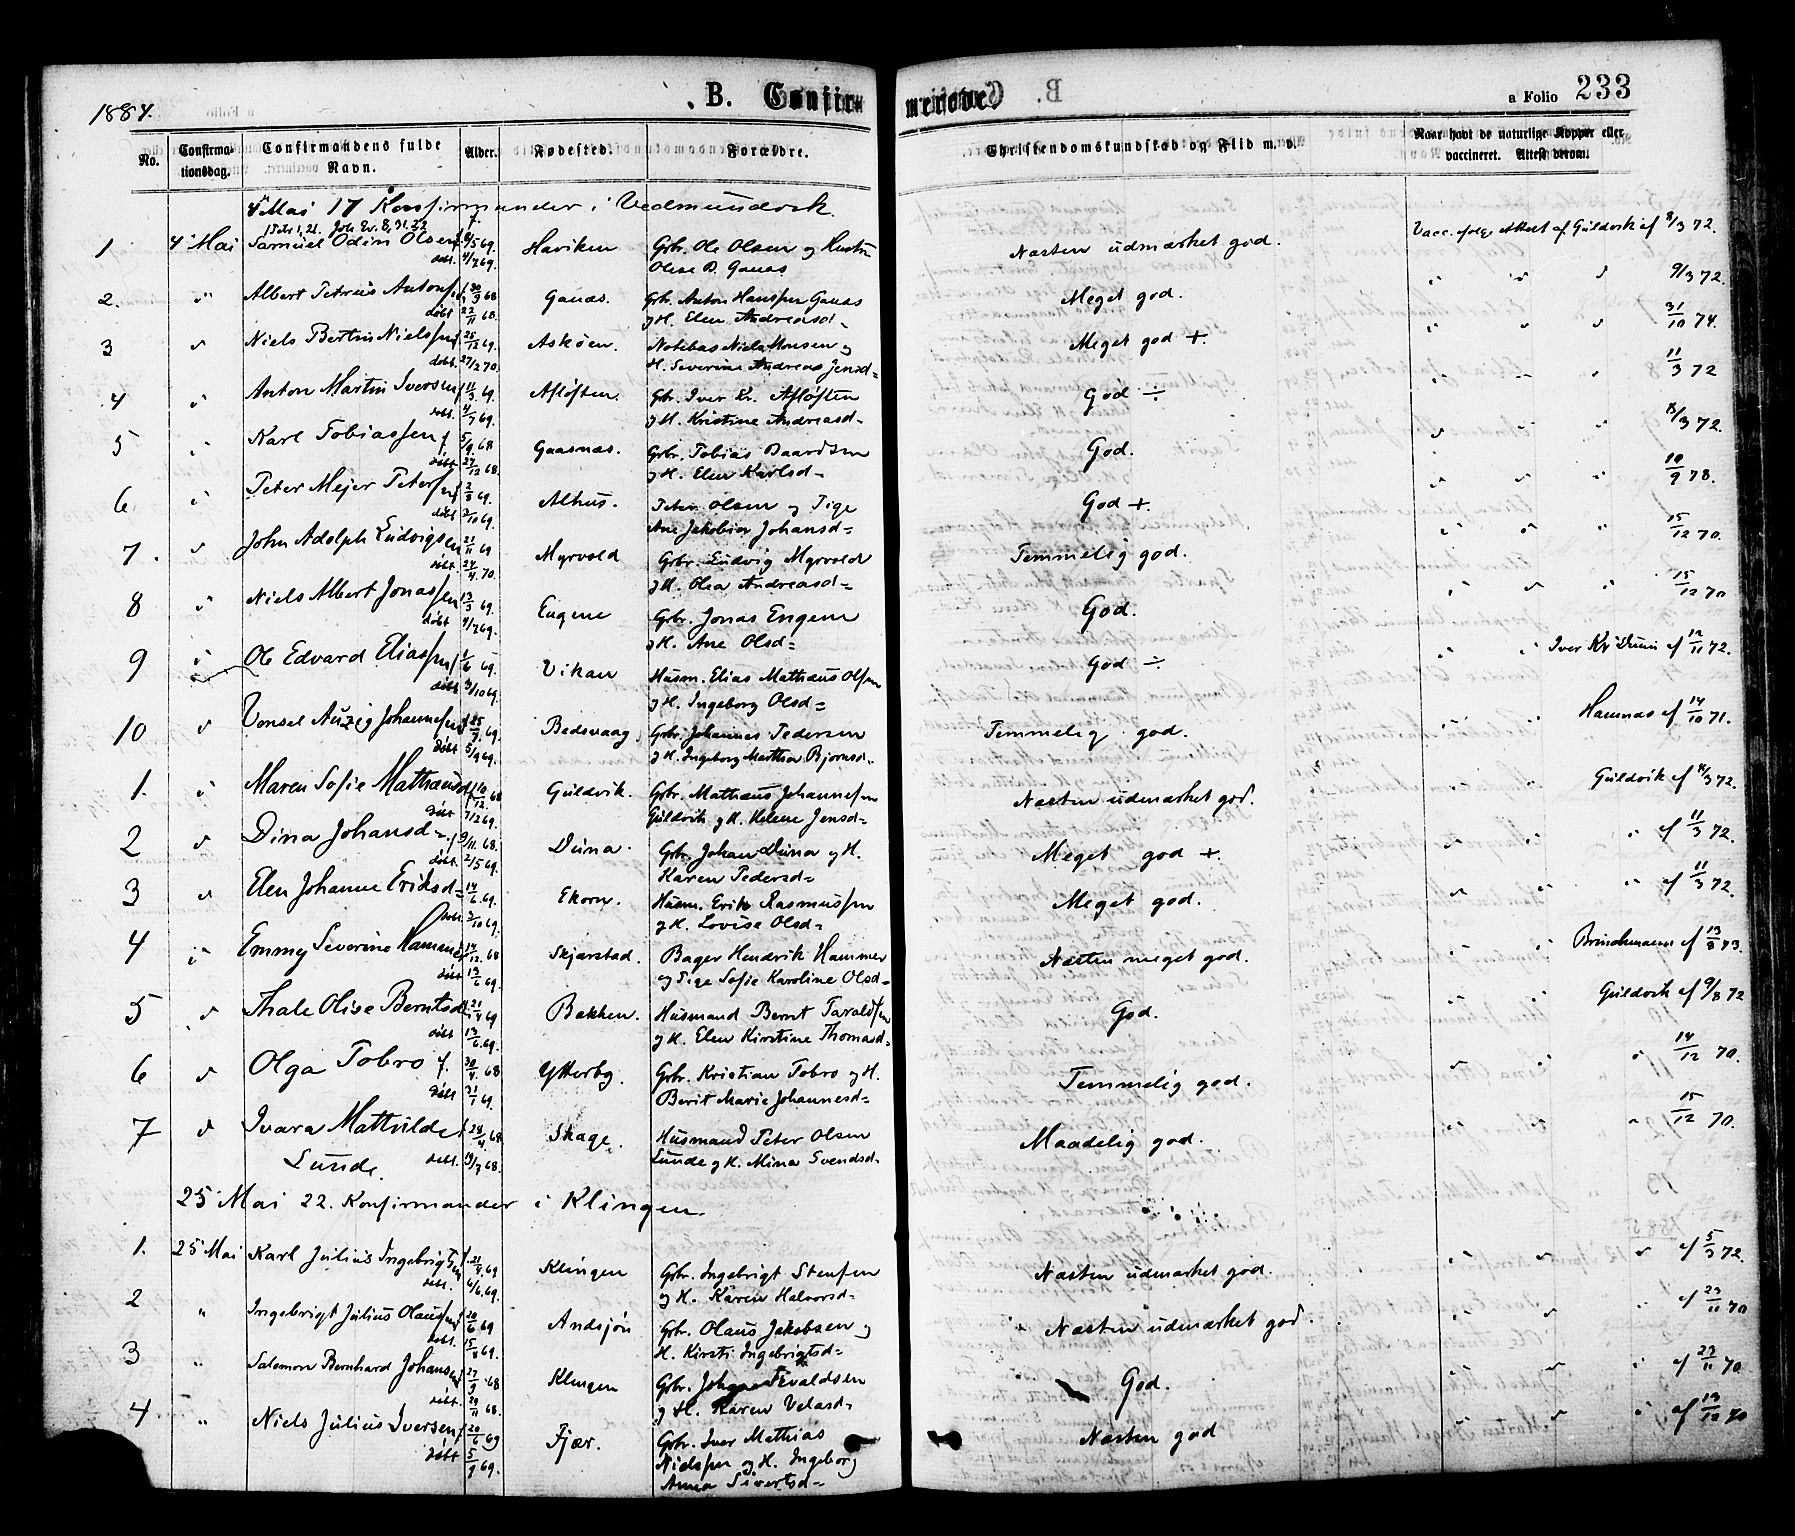 1884.
B. Confir-
merede.
a Folio 233
No.
Confirma-
tionsdag.
Confirmandens fulde
Navn.
Alder.
Fødested.
Forældre.
Christendomskundskab og Flid m. v.
Naar havt de naturlige Kopper eller
vaccineret. Attest derom.
4 Mai 17 Konfirmander i Vedmundvik.
1 4 Mai Samuel Odin Olsen f. 9/5 69. Haviken Grbr. Ole Olsen og Hustru Næsten udmærket god. Vacc. ifølge Attest af Guldvik af 8/3 72.
døbt 4/7 69. Olise D. Ganas
2. " Albert Petrus Antons. f. 30/9 68 Ganas. Grbr. Anton Hanssen Ganas Meget god. " " " 9/3 72.
døbt 22/11 68. og H. Elen Andreasd=
3 " Niels Bertin Nielssen f. 25/12 69. Askøen. Notebas Niels Monsen og Meget god +. " " " 31/10 74.
døbt. 27/2 70. H. Severine Andreas Jensd=
4 " Anton Martin Iversen f. 11/3 69. Afløften. Grbr. Iver Kr. Afløften God ÷ " " " 11/3 72
døbt. 4/7 69. og H. Kristine Andreasd=
5 " Karl Tobiassen f. 5/9 68 Gaasnæs. Grbr. Tobias Baardsen God. " " " 8/3 72.
døbt 27/12 68. og H. Elen Karlsd=
6 " Peter Mejer Peters. f. 2/8 69. Alhus. Peter Olsen og Pige God + " " " 10/9 78.
døbt 3/10 69. Ane Jakobine Johansd=
7. " John Adolph Ludvigsen 21/11 69 Myrvold Grbr. Ludvig Myrvold Temmelig god. " " " 15/12 70.
døbt. 24/4. 70. og H. Olea Andreasd=
8 " Niels Albert Jonassen 13/3 69. Engene Grbr. Jonas Engene God. " " " 15/12 70
døbt 4/7 69. og H. Ane Olsd=
9 " Ole Edvard Eliassen f. 1/6 69. Vikan Husm. Elias Mathæus Olsen God ÷ " " Iver Kr Duun af 12/11 72.
døbt 3/10 69. og H. Ingeborg Olsd=
10 " Johannessen f. 25/7. 69. Bedsvaag. Grbr. Johannes Pedersen Temmelig god. " " Hamnæs af 14/10 71.
døbt 5/9 69. og H. Ingeborg Marthea Bjørnsd=
1. " Maren Sofie Mathæusd f. 10/12. 68 Guldvik. Grbr. Mathæus Johannesen Næsten udmærket god. " " Guldvik af 8/3 72.
døbt 7/2 69. Guldvik og H. Helene Jensd=
2 " Dina Johansd= f. 9/11. 68. Duna. Grbr. Johan Duna og H. Meget god +. " " " af 11/3 72.
døbt. 2/5 69. Karen Pedersd=
3 " Elen Johanne Eriksd= 14/6. 69. Ekorn. Husm. Erik Rasmussen Meget god. " " " af 11/3 72.
døbt 3/10 69. og H. Lovise Olsd=
4 " Emmy Severine Hammer 14/12. 68 Skjærstad. Bager Hendrik Hammer Næsten meget god. " " Brinchmann af 13/8 73.
døbt 13/6 69. og Pige Sofie Karoline Olsd=
5 " Thale Olise Berntsd 21/4 69 Bakken. Husmand Bernt Taraldsen God. " " Guldvik af 9/8 72
døbt 13/6. 69. og H. Elen Kirstine Thomasd=
6 " Olga Tobro f. 30/4. 68 Ytterby. Grbr. Kristian Tobro og H. Temmelig god. " " " 14/12 70.
døbt 31/1 69. Berit Marie Johannesd=
7 " Ivara Mathilde f. 24/4. 68 Skage. Husmand Peter Olsen Maadelig god. " " " 15/12 70.
Lunde. døbt. 19/7 68. Lunde og H. Mina Svendsd=
25 Mai 22. Konfirmander i Klingen.
1. 25 Mai Karl Julius Ingebrigtsen f. 21/4. 69 Klingen Grbr. Ingebrigt Stensen Næsten udmærket god. " " " af 5/3 72.
døbt. 6/6. 69. og H. Karen Halvorsd=
2 " Ingebrigt Julius Olaussen f. 20/6 69 Andsjøn Grbr. Olaus Jakobsen og Næsten udmærket god. " " " af 23/11 70
døbt. 69. H. Kirsti Ingebrigtsd=
3 " Salomon Bernhard Johansen 27/9 68 Klingen Grbr. Johan God. " " " af 23/11 70.
døbt. 29/11 68. og H. Karen Velasd=
4 " Niels Julius Iversen f. 20/6 69 Fjær. Grbr. Iver Mathias Næsten god " " " af 13/12 70
døbt 5/9 69. Nielssen og H. Ingeborg
Anna Sivertsd=